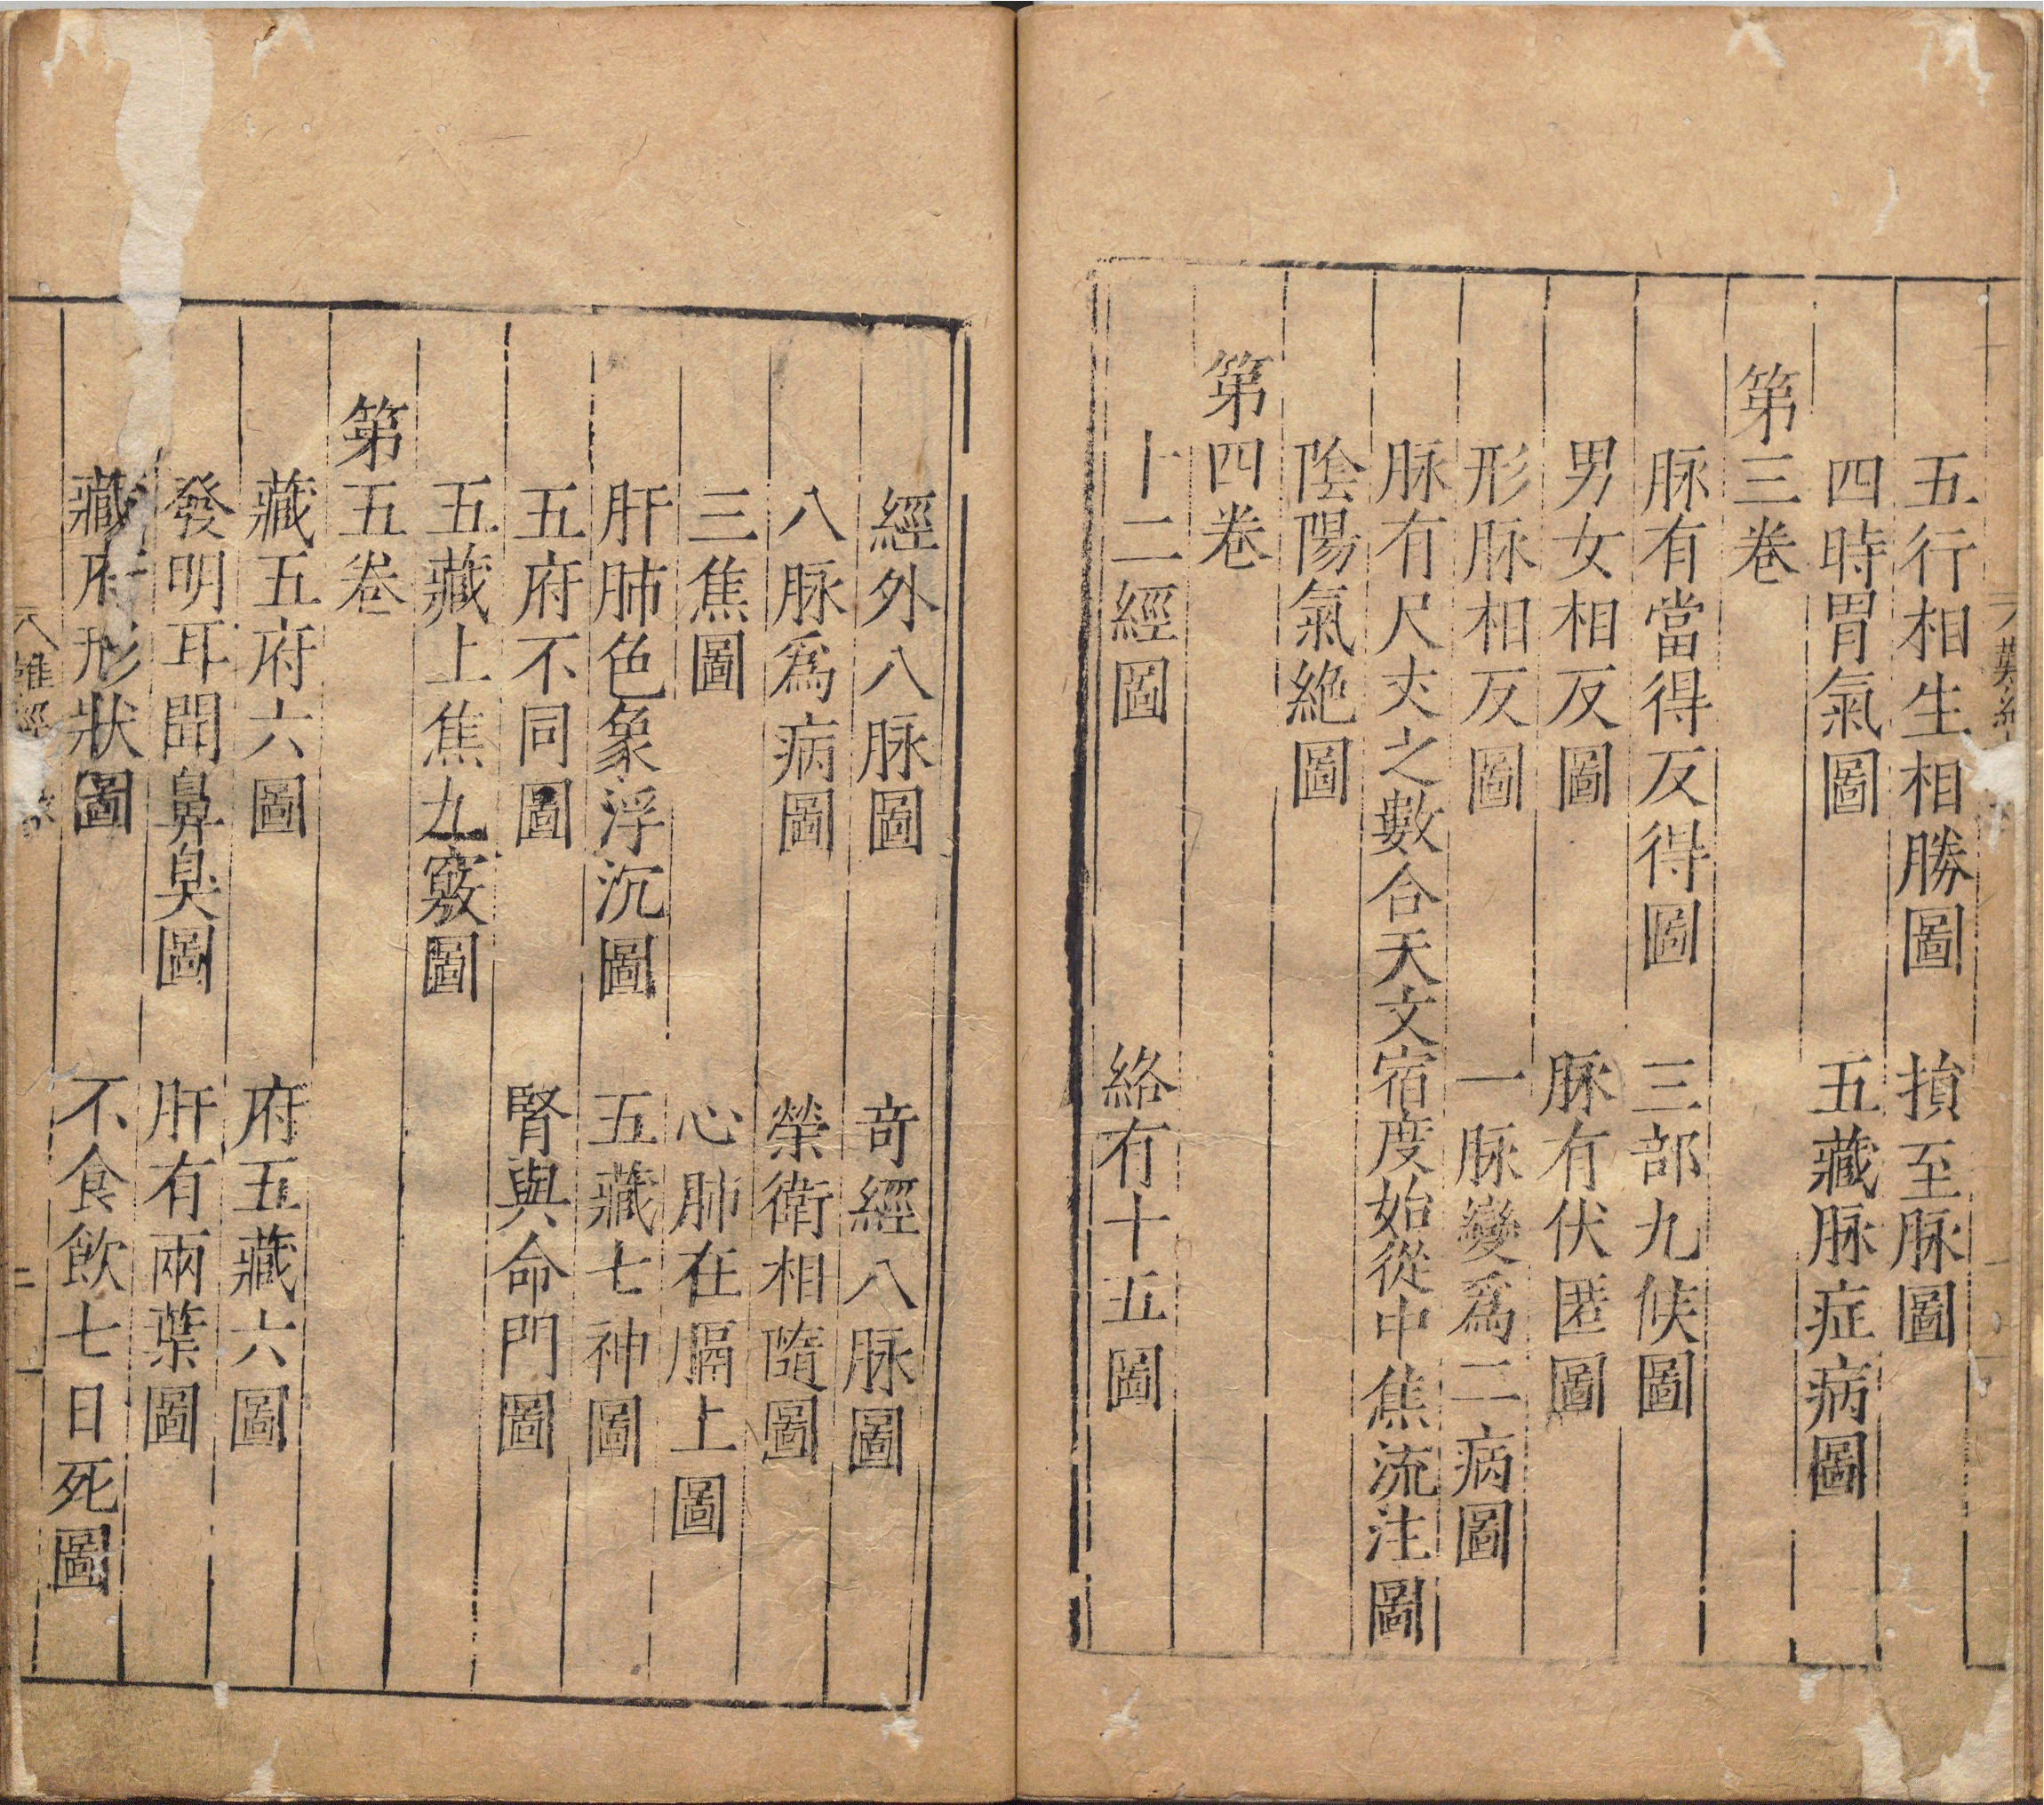 五行相生相勝圖　損至脉圖
四時胃氣圖　五藏脉症病圖
第三卷
脉有當得反得圖　三部九候圖
男女相反圖　脉有伏匿圖
形脉相反圖　一脉變爲二病圖
脉有尺丈之數合天文宿度始從中焦流注圖
陰陽氣絶圖
第四卷
十二經圖　絡有十五圖
經外八脉圖　竒經八脉圖
八脉爲病圖　榮衛相隨圖
三焦圖　心肺在膈上圖
肝肺色象浮沉圖　五藏七神圖
五府不同圖　腎與命門圖
五藏上焦九竅圖
第五卷
藏五府六圖　府五藏六圖
發明耳聞鼻臭圖　肝有兩葉圖
藏府形狀圖　不食飲七日死圖
難經